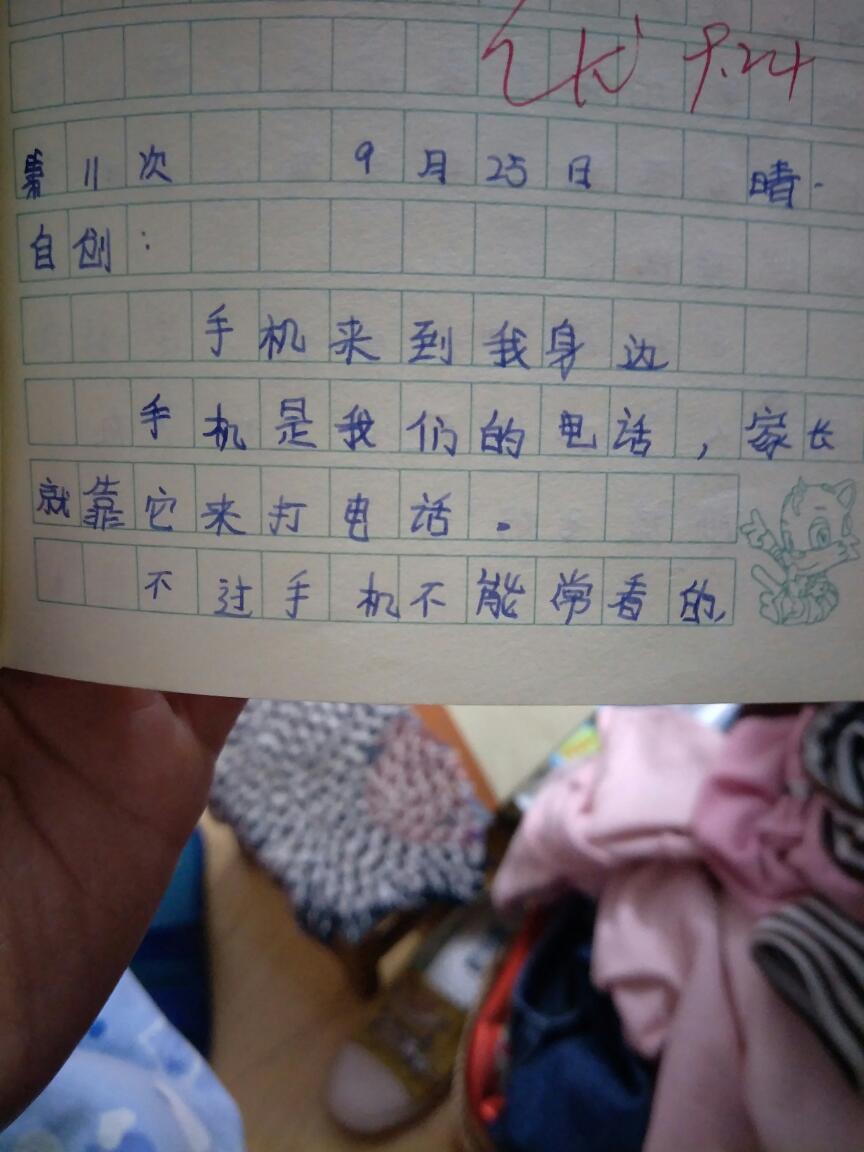 9.24
第11次 9月25日 晴.
自创：
手机来到我身边
手机是我们的电话，家长
就靠它来打电话。
不过手机不能常看的,